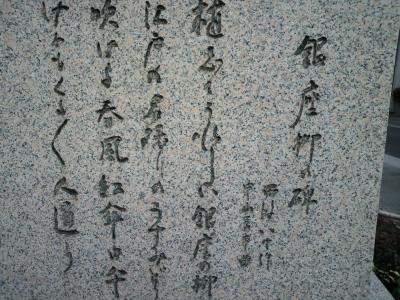 銀座柳の碑
西條八十作
中山晋平曲
植えてうれしい銀座の柳
江戸の名残りのうすみどり
吹けよ春風紅傘日傘
けふもくるくる人通り